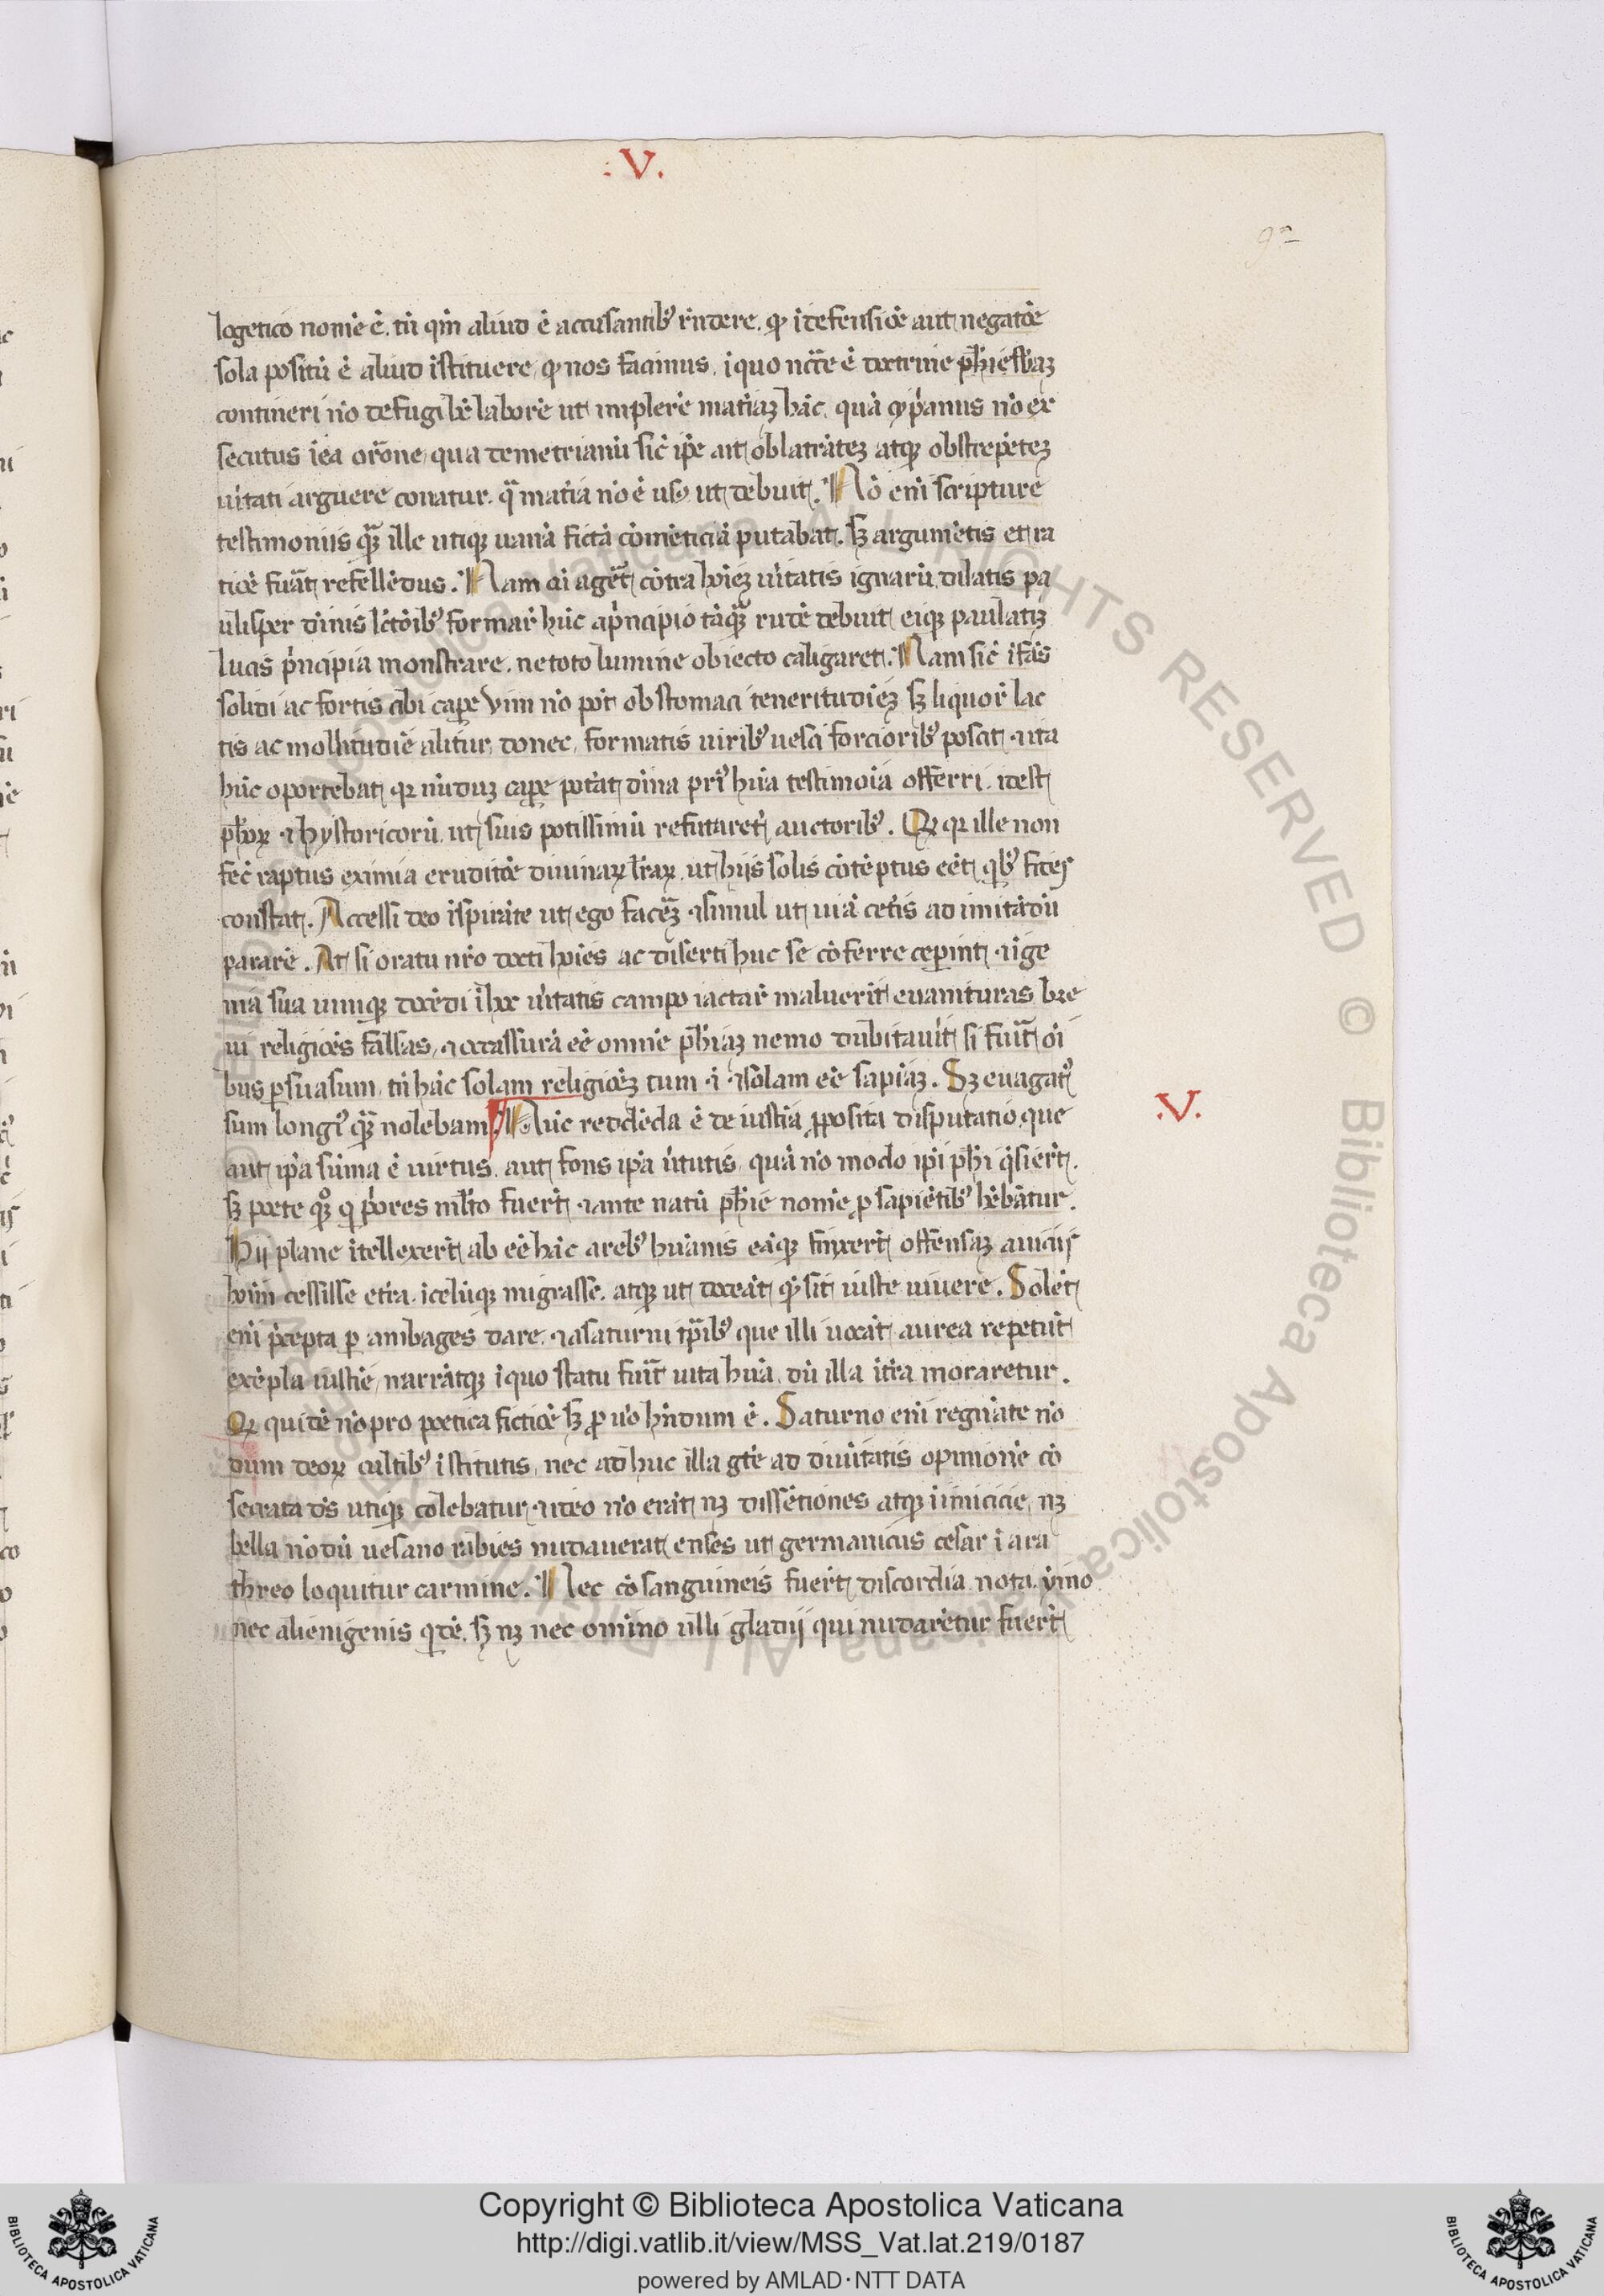 :V.
9a
logetico noīe ē. tn̄ qm̄ aliud ē accusantibꝰ rn̄dere. ꝙ ī defensiōe aut negatōe
sola positū ē aliud īstituere, ꝙ nos facimus, ī quo nc̄ce ē doctrine phīe sb̄az
contineri nō defugi hē laborē ut implerē matīaz hāc. quā cyp̄anus nō ex
secutus ī ea or̄one qua demetrianū sic̄ ip̄e ait oblatrātez atqꝫ obstrepētez
ūitati arguere conatur. qᷓ matīa nō ē usꝰ ut debuit. Nō enī scripture
testimoniis qᷓꝫ ille utiqꝫ uanā fictā cōmēticiā putabat. sꝫ argumētis et ra
tiōe fuāt refellēdus. Nam cū aget̄ cōtra hoīez ūitatis ignarū, dilatis pa
ulisper dīnis lc̄tōibꝰ formar̄ hūc a p̄ncipio tāqᷓꝫ rudē debuit, eiqꝫ paulatiꝫ
lucis p̄ncipia monstrare. ne toto lumine obiecto caligaret. Nam sic̄ īfās
solidi ac fortis cibi cap̱e vim nō pōt ob stomaci teneritudīez sꝫ liquor̄ lac
tis ac mollitudīe alitur, donec, formatis uiribꝰ uesci forcioribꝰ possit ⁊ ita
hūc oportebat, qꝛ nūduz cap̱e potāt dīna priꝰ hūa testimoīa offerri. idest
phoꝝ ⁊ hystoricorū, ut suis potissimū refutaret̄ auctoribꝰ. Qꝫ qꝛ ille non
fec̄ raptus eximia eruditōe diuinaꝝ lr̄aꝝ. ut hiis solis cōtēptus eēt, qbꝰ fides
constat. Accessi deo īspirāte ut ego facēꝫ ⁊ simul ut uiā cet̄is ad imitādū
pararē. At si oratu nr̄o docti hoīes ac diserti huc se cōferre cep̱int, ⁊ īge
nia sua uimqꝫ docēdi ī hoc ūitatis campo iactar̄ maluerīt, euanituras bre
ui religiōes falsas, ⁊ occassurā eē omnē phīaz nemo dubitauīt, si fuīt oī
bus ꝑsuasum, tn̄ hāc solam religiōez tum ⁊ ī ⁊ solam eē sapīaz. Sꝫ euagatꝰ
sum longiꝰ qᷓꝫ nolebam. Nūc reddēda ē de iustīa ꝓposita disputatio, que
:V.
aut ip̄a sūma ē uirtus, aut fons ip̄a ūtutis, quā nō modo ip̄i phī q̄sierūt.
sꝫ poete qꝫ q̄ p̄ores ml̄to fuerūt ⁊ ante natū phīe nomē ꝓ sapiētibꝰ hēbātur.
Hij plane ītellexerūt ab eē hāc a rebꝰ hūanis eāqꝫ finxerūt offensaz a uiciis
hoīm cessisse e t̄ra. ī celūqꝫ migrasse. atqꝫ ut doceāt ꝙ sit iuste uiuere. Solēt
enī p̄cepta ꝑ ambages dare. ⁊ a saturni tp̄ibꝰ que illi uocāt aurea repetūt
exēpla iustīe, narrātqꝫ ī quo statu fuīt uita hūa, dū illa ī t̄ra moraretur.
Qꝫ quidē nō pro poetica fictiōe sꝫ ꝓ uō hn̄dum ē. Saturno enī regnāte nō
dum deoꝝ cultibꝰ īstitutis, nec adhuc illa gte ad diuitatis opinionē cō
secrata d̄s utiqꝫ colebatur ⁊ ideo nō erāt nꝫ dissētiones atqꝫ inimicicie, nꝫ
bella nō dū uesano rabies nudauerat enses ut germanicus cesar ī ara
threo loquitur carmine. Nec cōsanguineis fuerāt discordia nota. ymo
nec alienigenis qdē. sꝫ nꝫ nec omīno ulli gladij qui nudarētur fuerūt
Copyright © Biblioteca Apostolica Vaticana
http://digi.vatlib.it/view/MSS_Vat.lat.219/0187
powered by AMLAD·NTT DATA